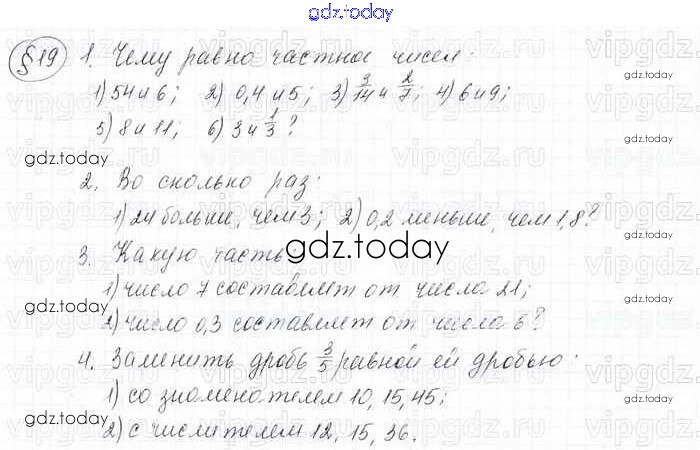 gdz.today
§19 1. Чему равно частное чисел:
1) 54 и 6; 2) 0,4 и 5; 3) 3/14 и 2/7; 4) 6 и 9;
5) 8 и 11; 6) 3 и 1/3?
2. Во сколько раз:
1) 24 больше, чем 3; 2) 0,2 меньше, чем 1,8?
3. Какую часть:
1) число 7 составляет от числа 21;
2) число 0,3 составляет от числа 6?
4. Заменить дробь 3/5 равной ей дробью:
1) со знаменателем 10, 15, 45;
2) с числителем 12, 15, 36.
gdz.today
gdz.today
gdz.today
gdz.today
gdz.today
gdz.today
gdz.today
gdz.today
gdz.today